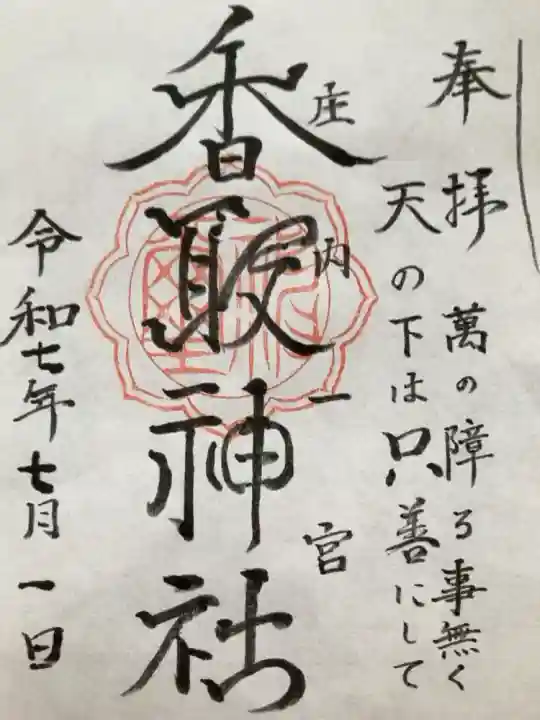 奉拝 萬の障る事無く
天の下は只善にして
庄内一宮
香取神社
令和七年七月一日